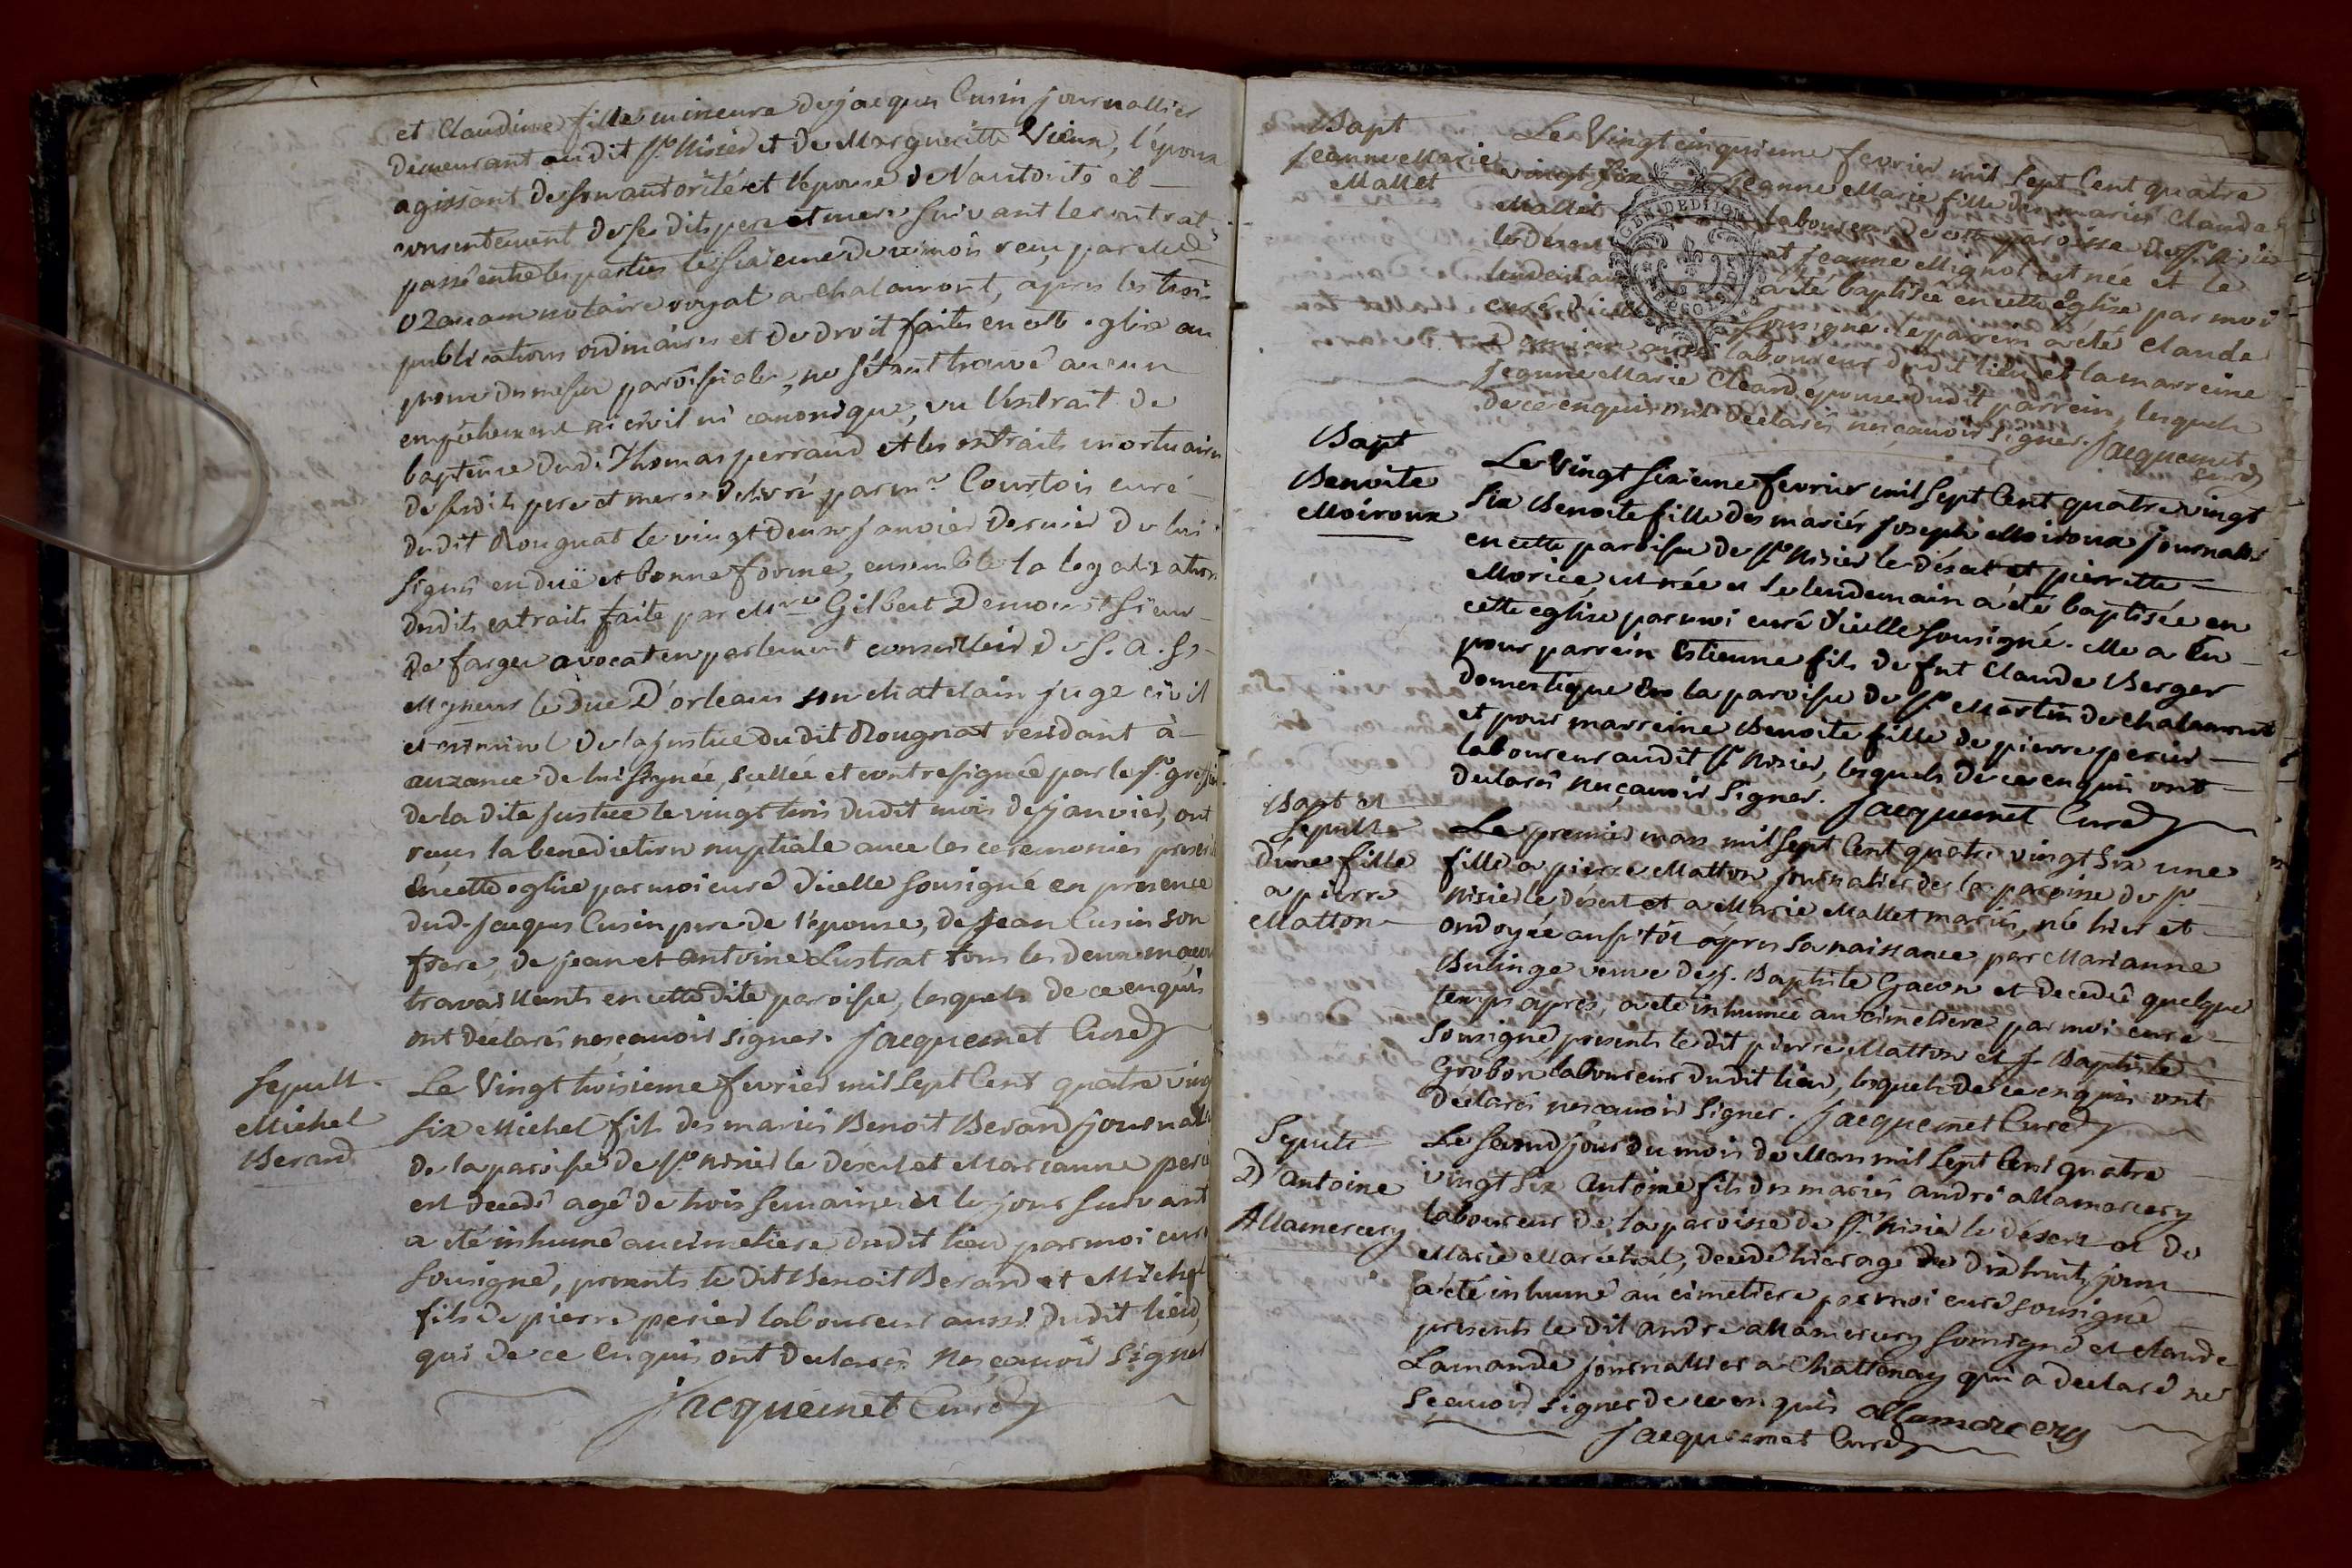 et Claudine fille mineure de jacques Cusin journallier
demeurant audit St Nisier et de Margueritte Vieux, l'époux
agissant de son autorité et l'épouse de l'autorité et
consentement de ses dits pere et mere suivant le contrat
passé entre les parties le sixieme de ce mois recu par Me
Ozanam notaire royal a Chalamont, apres les trois
publications ordinaires et de droit faites en cette eglise au
prone des messes paroissiales, ne s'étant trouvé aucun
empêchement ni civil ni canonique, vu l'extrait de
baptême dud. Thomas perraud et les extraits mortuaires
de sesdits pere et mere delivré par mr Courtois curé
dudit Rougnat le vingt deux janvier dernier de lui
signé en due et bonne forme, ensemble la legalization
desdits extraits faite par Gilbert sieur
de farges avocat en parlement conseiller de S. A. S.
Mgneur le Duc D'orleans son chatelain juge civil
et criminel de la justice dudit Rougnat rendant à
auzance de lui signée, scellée et contresignée par le Sr greffier
de la dite justice le vingt trois dudit mois de janvier, ont
recus la benediction nuptiale avec les ceremonies
en cette eglise par moi curé d'icelle sousigné en presence
dud. jacques Cusin pere de l'épouse, de jean Cusin son
frere, de jean et antoine Lustrat tous les deux maçons
travaillants en cette dite paroisse, lesquels de ce enquis
ont déclarés ne sçavoir signer. jacquemet Curé
Sepult.
Michel
Berand
Le Vingt troisieme fevrier mil sept Cent quatre vingt
six Michel fils des mariés Benoit Berand journallier
de la paroisse de St nisier le désert et Marianne
est decedé agé de trois semaines et le jour suivant
a été inhumé au cimetiere dudit lieu par moi curé
sousigné, presents le dit Benoit Berand et Michel
fils de pierre perier laboureur aussi dudit lieu,
qui de ce enquis ont declarés ne sçavoir signer
jacquemet Curé
Bapt
jeanne Marie
Mallet
Le Vingt cinquieme fevrier mil sept Cent quatre
vingt six Jeanne Marie fille des mariés Claude
Mallet laboureur de cette paroisse de St Nisier
le désert et jeanne Mignot est née et le
lendemain a été baptisée en cette eglise par moi
curé d'icelle sousigné. le parrein a été Claude
laboureur dudit lieu et la marreine
jeanne Marie Cleard épouse dudit parrein, lesquels
de ce enquis ont déclarés ne sçavoir signer. jacquemet
curé
Bapt
Benoite
Moiroux
Le Vingt sixieme fevrier mil sept Cent quatre vingt
six Benoite fille des mariés joseph Moiroux journallier
en cette paroisse de St Nisier le désert et pierrette
Moricé, est née et le lendemain a été baptisée en
cette eglise par moi curé d'icelle sousigné. elle a eu
pour parrein Estienne fils de fut Claude Berger
domestique en la paroisse de St Martin de chalamont
et pour marreine Benoite fille de pierre perier
laboureur audit St Nisier, lesquels de ce enquis ont
declarés ne sçavoir signer. jacquemet Curé
Bapt et
Sepult
d'une fille
a pierre
Matton
Le premier mars mil sept Cent quatre vingt six une
fille a pierre Matton journalier de la paroisse de St
Nisier le désert et a Marie Mallet mariés, née hier et
ondoyée aussitôt après sa naissance par Marianne
Bulinge veuve de j. Baptiste Gacon et decedée quelque
temps apres, a été inhumée au cimetiere par moi curé
sousigné presents le dit pierre Matton et j. Baptiste
Grobon laboureur dudit lieu, lesquels de ce enquis ont
déclarés ne sçavoir signer. jacquemet Curé
Sepult
D'Antoine
Allamercery
Le second jour du mois de Mars mil sept Cent quatre
vingt six Antoine fils des mariés andré allamercery
laboureur de la paroisse de St Nisier le désert et de
Marie Maréchal, decedé hier agé de dix huit jours
a été inhumé au cimetiere par moi curé sousigné
presents le dit andré allamercery sousigné et claude
Lamande journallier a Chattenay qui a declaré ne
sçavoir signer de ce enquis allamercery
jacquemet Curé